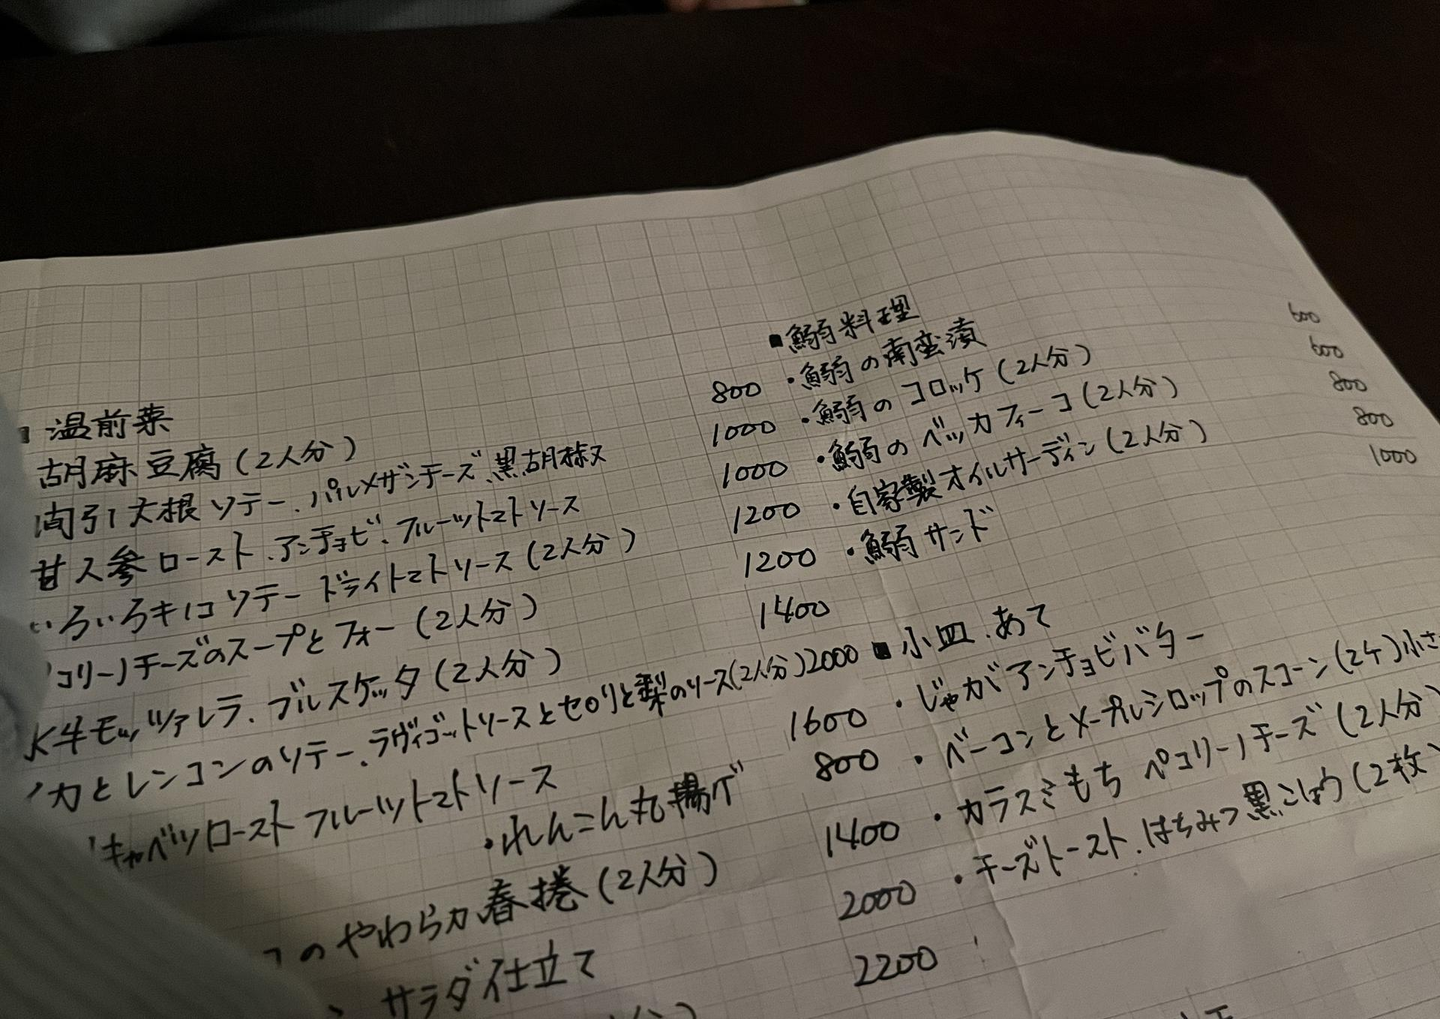 温前菜
胡麻豆腐(2人分) 800
間引大根ソテー、パルメザンチーズ、黒胡椒 1000
甘人参ロースト、アンチョビ、フルーツトマトソース 1000
いろいろキノコソテー ドライトマトソース(2人分) 1200
コリーノチーズのスープとフォー(2人分) 1200
水牛モッツァレラ、ブルスケッタ(2人分) 1400
カとレンコンのソテー、ラヴィゴットソースとセロリと梨のソース(2人分) 2000
キャベツロースト フルーツトマトソース 1600
・れんこん丸揚げ 800
のやわらか春捲(2人分) 1400
サラダ仕立て 2000
2200
■鰯料理
・鰯の南蛮漬 600
・鰯のコロッケ(2人分) 600
・鰯のベッカフィーコ(2人分) 800
・自家製オイルサーディン(2人分) 800
・鰯サンド 1000
■小皿、あて
・じゃがアンチョビバター
・ベーコンとメープルシロップのスコーン(2ケ)小さ
・カラスミもち ペコリーノチーズ(2人分)
・チーズトースト、はちみつ黒こしょう(2枚)